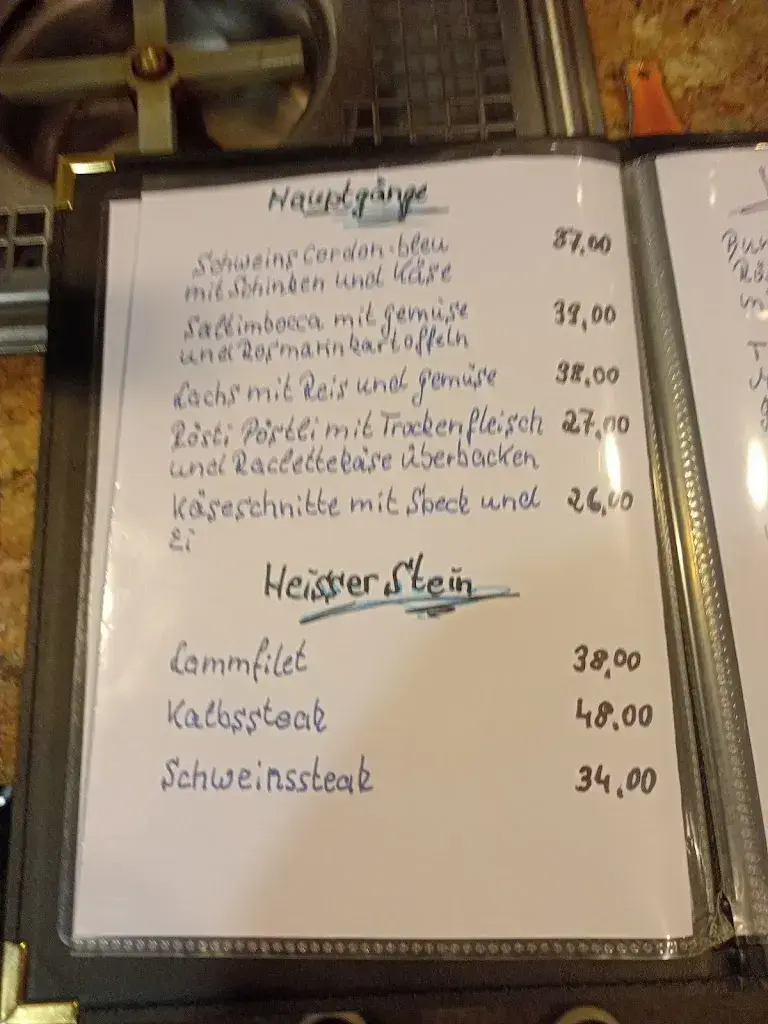 Hauptgänge
Schweins Cordon-bleu 37,00
mit Schinken und Käse
Saltimbocca mit gemüse 39,00
und Rosmarinkartoffeln
Lachs mit Reis und gemüse 38,00
Rösti Pöstli mit Trockenfleisch 27,00
und Raclettekäse überbacken
Käseschnitte mit Speck und 26,00
Ei
Heisser Stein
Lammfilet 38,00
Kalbssteak 48.00
Schweinssteak 34,00